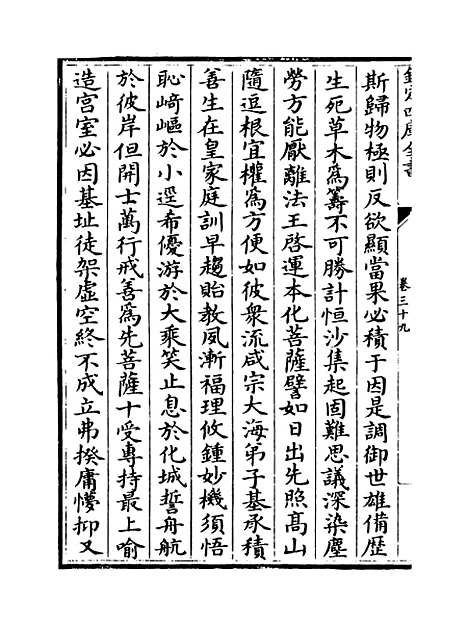 欽定四庫全書
卷三十九
斯歸物極則反欲顯當果必積于因是調御世雄備歷
生死草木為籌不可勝計恒沙集起固難思議深染塵
勞方能厭離法王啓運本化菩薩譬如日出先照高山
隨逗根宜權為方便如彼衆流咸宗大海弟子基承積
善生在皇家庭訓早趨貽教夙漸福理攸鍾妙機須悟
恥崎嶇於小逕希優游於大乘笑止息於化城誓舟航
於彼岸但開士萬行戒善為先菩薩十受專持最上喻
造宮室必因基址徒架虛空終不成立弗揆庸懵抑又